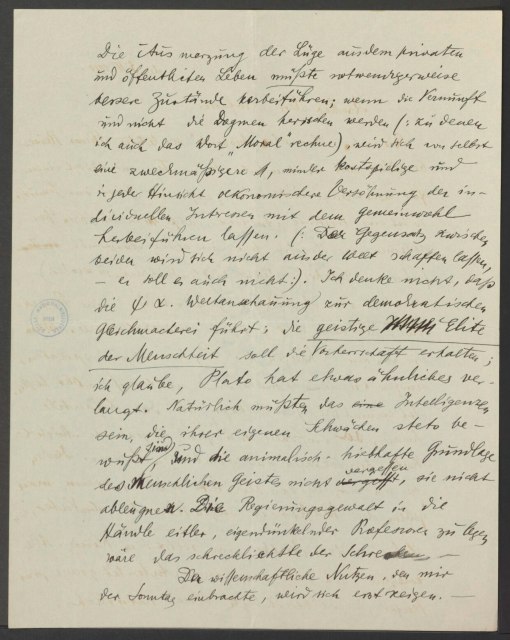 Die Ausmerzung der Lüge aus dem privaten
und öffentlichen Leben müßte notwendigerweise
bessere Zustände herbeiführen; wenn die Vernunft
und nicht die Dogmen herrschen werden (: zu denen
ich auch das Wort „Moral" rechne), wird sich von selbst
eine zweckmäßigere, minder kostspielige und
in jeder Hinsicht oekonomischere Versöhnung der in-
dividuellen Interessen mit dem Gemeinwohl
herbeiführen lassen. (: Der Gegensatz zwischen
beiden wird sich nicht aus der Welt schaffen lassen,
– er soll es auch nicht :). Ich denke nicht, daß
die ψ α. Weltanschauung zur demokratischen
Gleichmacherei führt; die geistige Elite
der Menschheit soll die Vorherrschaft erhalten;
ich glaube, Plato hat etwas ähnliches ver-
langt. Natürlich müßten das eine Intelligenzen
sein, die ihrer eigenen Schwächen stets be-
wußt sind und die animalisch-triebhafte Grundlage
des Menschlichen Geistes nicht vergessen, sie nicht
ableugnen. Die Regierungsgewalt in die
Hände eitler, eigendünkelnder Professoren zu legen
wäre das schrecklichste der Schrecken –
Der wissenschaftliche Nutzen, den mir
der Sonntag einbrachte, wird sich erst zeigen. –